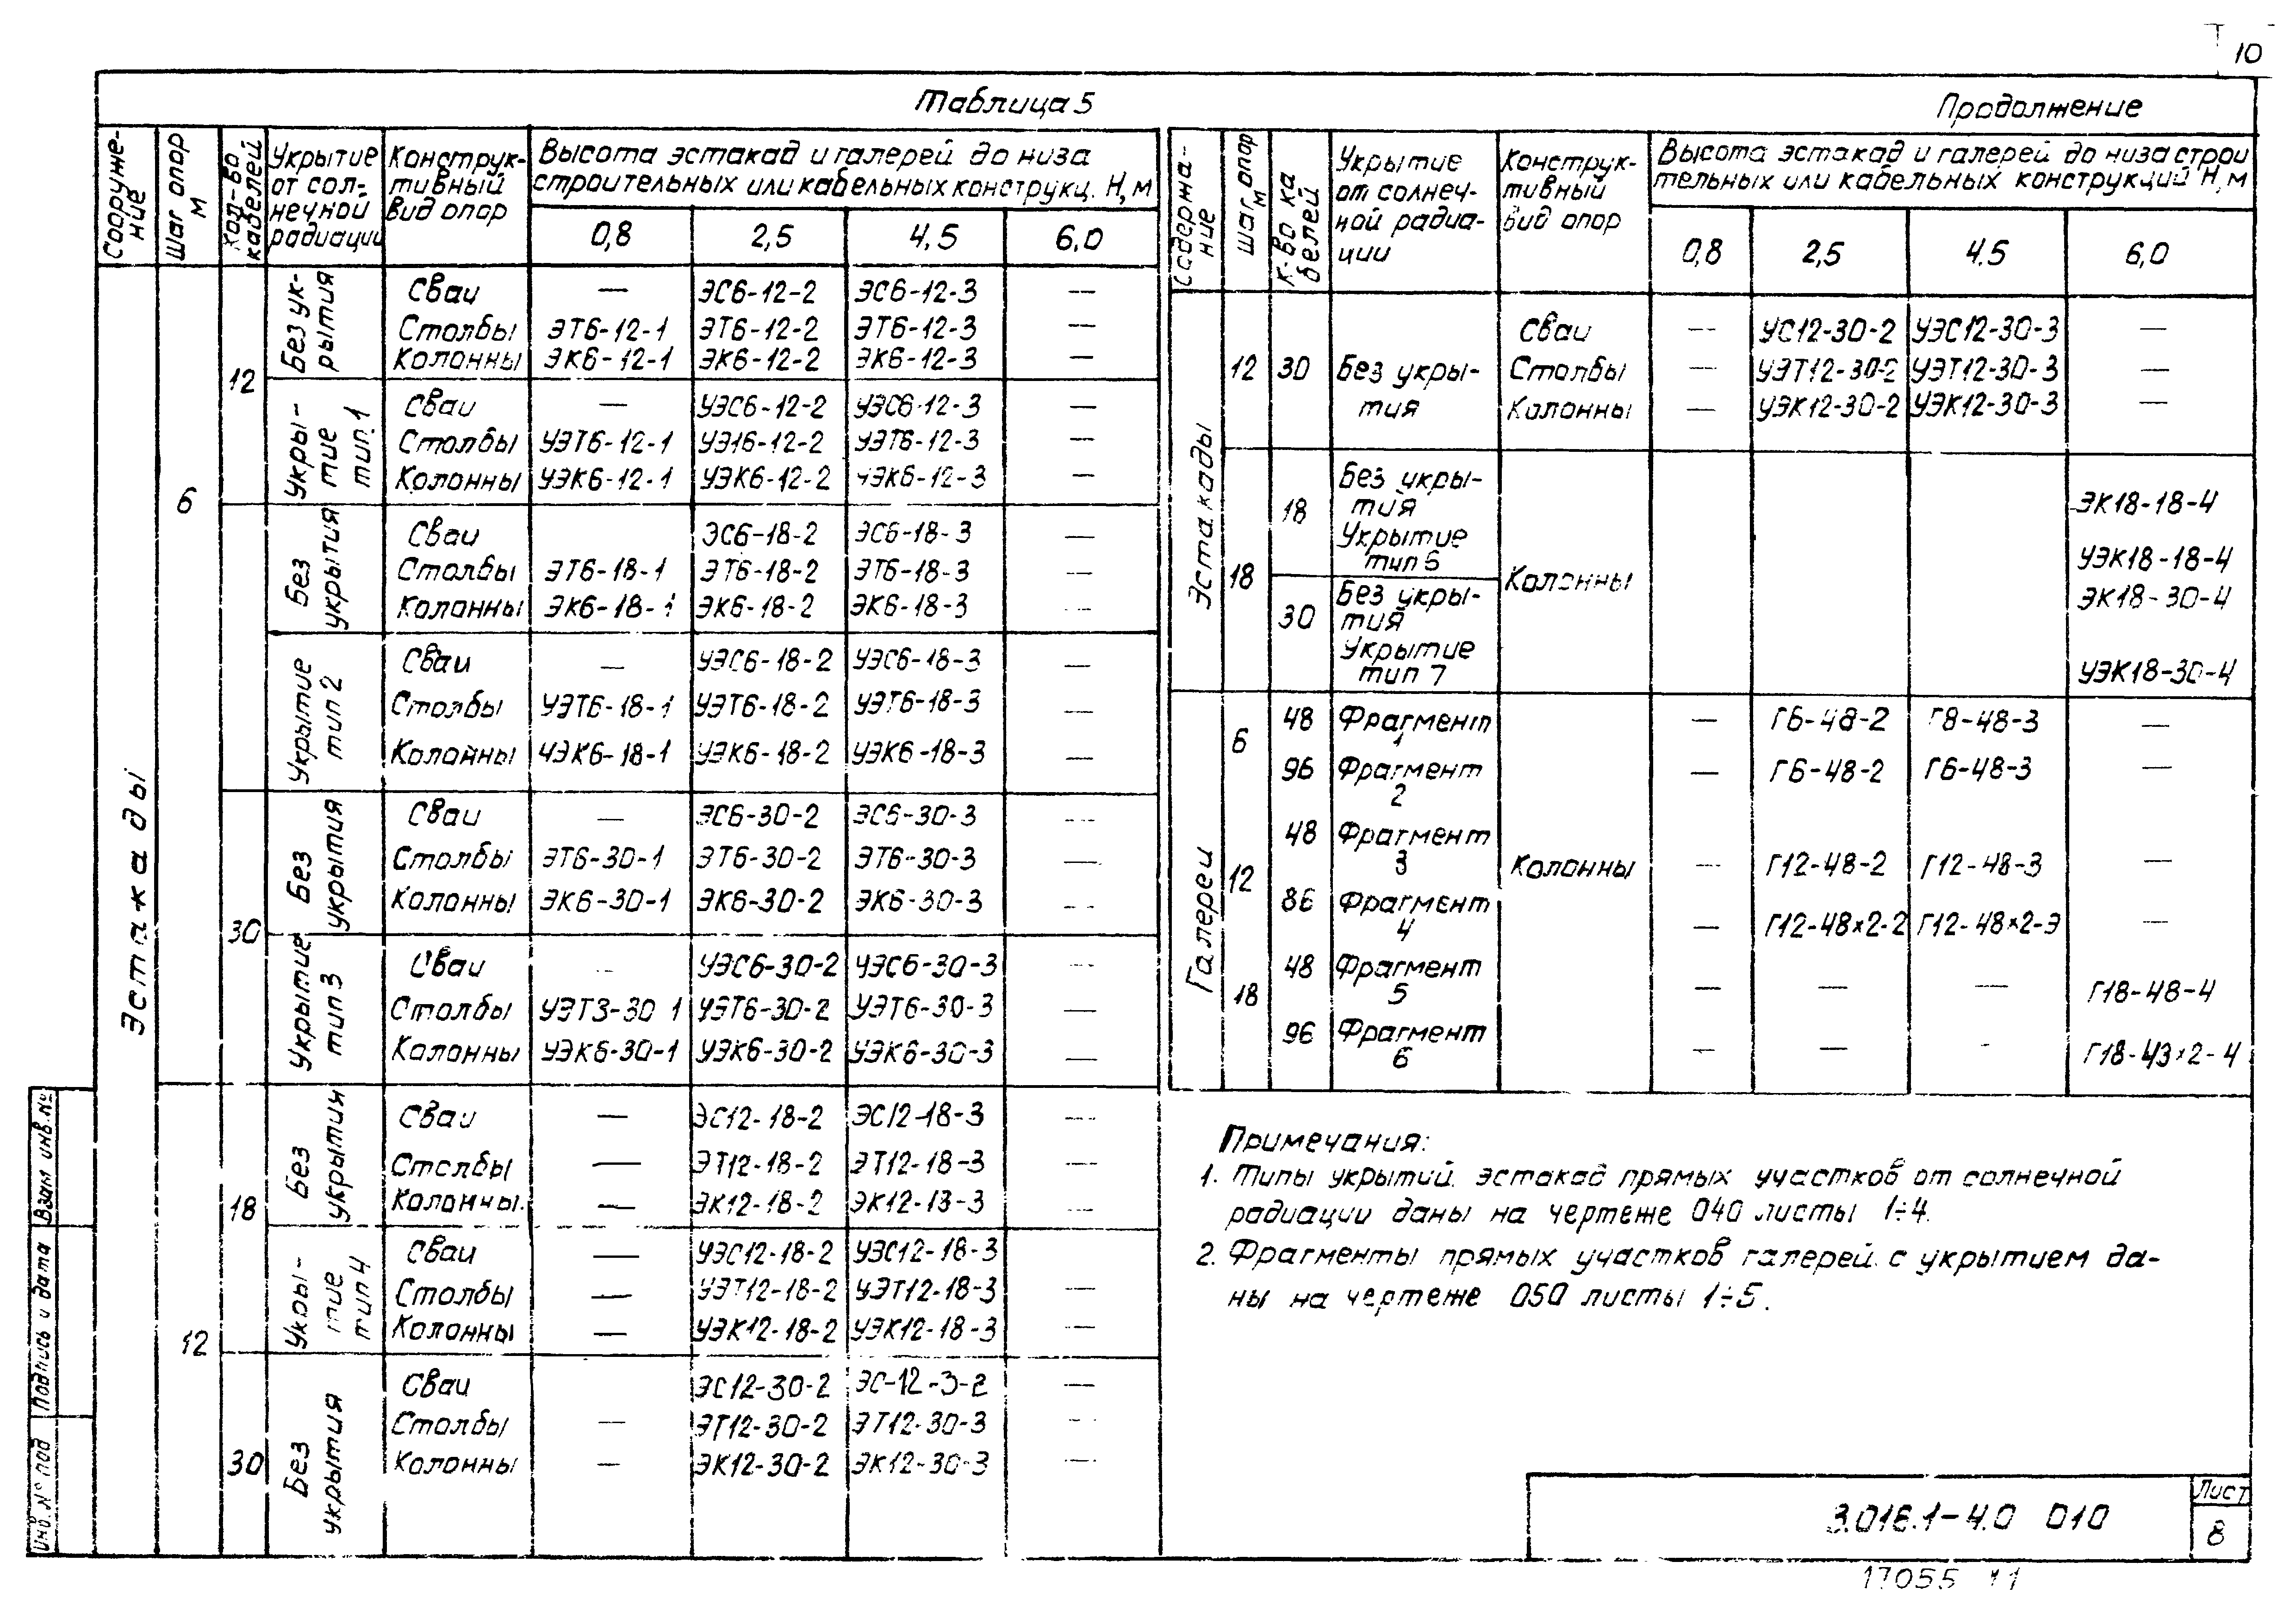 10
Таблица 5
Сооруже-
ние
Шаг опор
м
Кол-во
кабелей
Укрытие
от сол-
нечной
радиации
Конструк-
тивный
вид опор
Высота эстакад и галерей до низа
строительных или кабельных конструкц. Н, м
0,8 2,5 4,5 6,0
Эстакады
6
12
Без ук-
рытия
Сваи — ЭС6-12-2 ЭС6-12-3 —
Столбы ЭТ6-12-1 ЭТ6-12-2 ЭТ6-12-3 —
Колонны ЭК6-12-1 ЭК6-12-2 ЭК6-12-3 —
Укры-
тие
тип.1
Сваи — УЭС6-12-2 УЭС6-12-3 —
Столбы УЭТ6-12-1 УЭ16-12-2 УЭТ6-12-3 —
Колонны УЭК6-12-1 УЭК6-12-2 УЭК6-12-3 —
Без
укрытия
Сваи ЭС6-18-2 ЭС6-18-3 —
Столбы ЭТ6-18-1 ЭТ6-18-2 ЭТ6-18-3 —
Колонны ЭК6-18-1 ЭК6-18-2 ЭК6-18-3 —
Укрытие
тип 2
Сваи — УЭС6-18-2 УЭС6-18-3 —
Столбы УЭТ6-18-1 УЭТ6-18-2 УЭТ6-18-3 —
Колонны УЭК6-18-1 УЭК6-18-2 УЭК6-18-3 —
30
Без
укрытия
Сваи — ЭС6-30-2 ЭС6-30-3 —
Столбы ЭТ6-30-1 ЭТ6-30-2 ЭТ6-30-3 —
Колонны ЭК6-30-1 ЭК6-30-2 ЭК6-30-3 —
Укрытие
тип 3
Сваи — УЭС6-30-2 УЭС6-30-3 —
Столбы УЭТ3-30 1 УЭТ6-30-2 УЭТ6-30-3 —
Колонны УЭК6-30-1 УЭК6-30-2 УЭК6-30-3 —
12
18
Без
укрытия
Сваи — ЭС12-18-2 ЭС12-18-3 —
Столбы — ЭТ12-18-2 ЭТ12-18-3 —
Колонны. — ЭК12-18-2 ЭК12-18-3 —
Укры-
тие
тип 4
Сваи — УЭС12-18-2 УЭС12-18-3 —
Столбы — УЭТ12-18-2 УЭТ12-18-3 —
Колонны — УЭК12-18-2 УЭК12-18-3 —
30
Без
укрытия
Сваи ЭС12-30-2 ЭС-12-3-2 —
Столбы — ЭТ12-30-2 ЭТ12-30-3 —
Колонны — ЭК12-30-2 ЭК12-30-3 —
Продолжение
Содержа-
ние
Шаг опор
м
К-во ка
белей
Укрытие
от солнеч-
ной радиа-
ции
Конструк-
тивный
вид опор
Высота эстакад и галерей до низа строи
тельных или кабельных конструкций Н, м
0,8 2,5 4.5 6,0
Эстакады
12 30 Без укры-
тия
Сваи — УС12-30-2 УЭС12-30-3 —
Столбы — УЭТ12-30-2 УЭТ12-30-3 —
Колонны — УЭК12-30-2 УЭК12-30-3 —
18
18
Без укры-
тия
ЭК18-18-4
Укрытие
тип 6
УЭК18-18-4
Колонны
30
Без укры-
тия
ЭК18-30-4
Укрытие
тип 7
УЭК18-30-4
Галереи
6
48 Фрагмент
1
— Г6-48-2 Г8-48-3 —
96 Фрагмент
2
— Г6-48-2 Г6-48-3 —
12
48 Фрагмент
3
Колонны — Г12-48-2 Г12-48-3 —
86 Фрагмент
4
— Г12-48×2-2 Г12-48×2-Э —
18
48 Фрагмент
5
— — — Г18-48-4
96 Фрагмент
6
— — - Г18-43×2-4
Примечания:
1. Типы укрытий эстакад прямых участков от солнечной
радиации даны на чертеже 040 листы 1÷4.
2. Фрагменты прямых участков галерей с укрытием да-
ны на чертеже 050 листы 1÷5.
Взам инв.№
Подпись и дата
Инв.№ под
3.016.1-4.0 010
Лист
8
17055